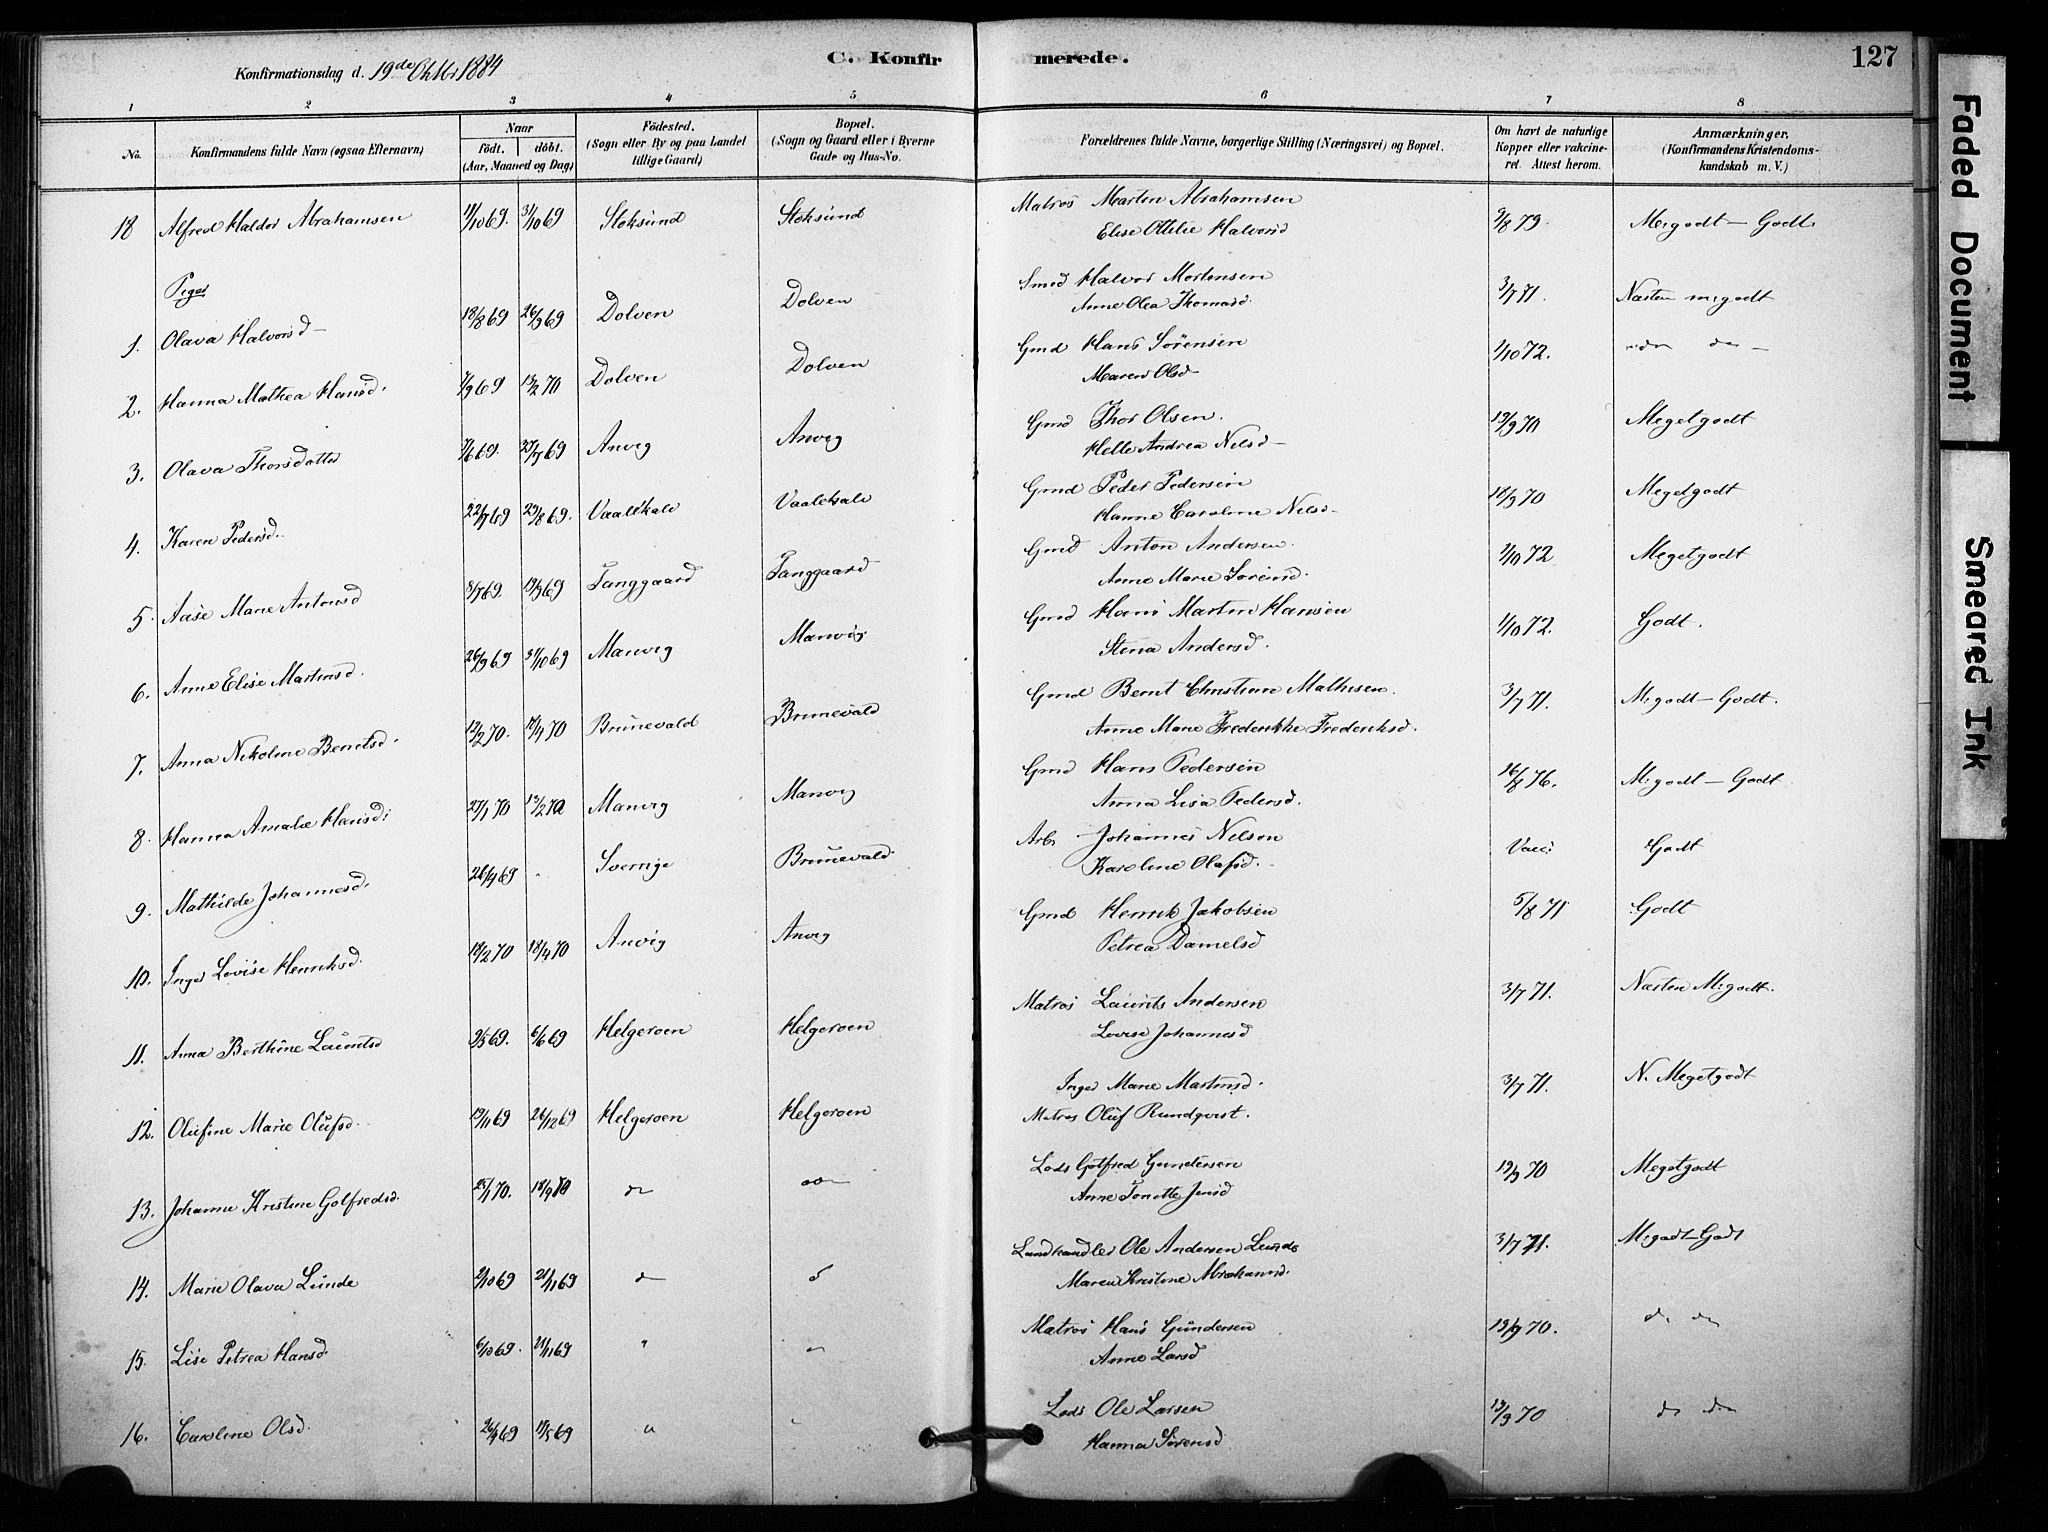 Konfirmationsdag d. 19de Oktbr 1884
C. Konfirmerede.
127
Faded Document
Smeared Ink
1 2 3 4 5 6 7 8
No.
Konfirmandens fulde Navn (ogsaa Efternavn)
Naar
födt. döbt.
(Aar, Maaned og Dag)
Födested.
(Sogn eller By og paa Landet tillige Gaard)
Bopæl.
(Sogn og Gaard eller i Byerne Gade og Hus-No.
Forældrenes fulde Navne, borgerlige Stilling (Næringsvei) og Bopæl.
Om havt de naturlige Kopper eller vakcineret. Attest herom.
Anmærkninger.
(Konfirmandens Kristendomskundskab m. V.)
18 Alfred Haldor Abrahamsen 11/10 69. 31/10 69 Stoksund Stoksund Matros Martin Abrahamsen 9/8 79. M.godt - Godt.
Elise Othilie Halvorsd
Piger
1. Olava Halvorsd 18/8 69 26/9 69 Dolven Dolven Smed Halvor Mortensen 3/7 71. Næsten m.godt
Anne Olea Thomasd
2. Hanna Mathea Hansd. 7/9 69 13/2 70 Dolven Dolven Gmd Hans Sörensen 1/10 72. do do
Maren Olsd
3. Olava Thorsdatter 7/6 69. 25/7 69 Anvig Anvig Gmd Thor Olsen. 19/9 70 Megetgodt
Helle Andrea Nilsd
4. Karen Pedersd. 22/7 69 29/8 69. Vaalekale Vaalekale Gmd Peder Pedersen 18/9 70 Megetgodt
Hanne Caroline Nilsd
5. Aase Marie Antonsd 8/7 69. 19/9 69 Tanggaard Tanggaard Gmd Anton Andersen 1/10 72 Megetgodt
Anne Marie Sörensd.
6. Anne Elise Martinsd. 26/9 69 31/10 69 Manvig Manvig Gmd Hans Martin Hansen 1/10 72. Godt.
Stina Andersd.
7. Anna Nikoline Berntsd. 12/2 70. 17/4 70 Brunevald Brunevald Gmd Bernt Christian Mathisen. 3/7 71. M.godt - Godt.
Anne Marie Frederikke Frederiksd.
8. Hanna Amalie Hansd. 27/1 70 13/2 70 Manvig Manvig Gmd Hans Pedersen 16/8 76. M.godt - Godt.
Anna Lisa Pedersd.
9. Mathilde Johannesd. 26/9 69 - Sverrige Brunevald Arb. Johannes Nilson Vacc: Godt
Karoline Olafsd.
10. Inger Lovise Henriksd. 12/2 70 18/4 70 Anvig Anvig Gmd Henrik Jakobsen 5/8 71 Godt
Petrea Danielsd
11. Anna Berthine Lauritsd 9/5 69. 6/6 69 Helgeroen Helgeroen Matros Laurits Andersen 3/7 71. Næsten M.godt.
Lovise Johannesd
12. Olufine Marie Olufsd. 19/11 69 26/12 69 Helgeroen Helgeroen Inger Marie Martinsd. 3/7 71. N. Megetgodt
Matros Oluf Rundqvist.
13. Johanne Kristine Gotfredsd. 25/1 70. 18/4 70 do do Lods Gotfred Gundersen 19/9 70 Megetgodt
Anne Tonette Jensd
14. Marie Olava Lunde 2/10 69 21/11 69 do d Landhandler Ole Andersen Lunde 3/7 71. M.godt-Godt
Maren Kristine Abrahamsd.
15. Lise Petrea Hansd. 6/10 69. 21/11 69 " " Matros Hans Gundersen 19/9 70. do do
Anne Larsd
16. Caroline Olsd. 26/4 69 17/5 69 " " Lods Ole Larsen 19/9 70 do do
Hanna Sörensd.